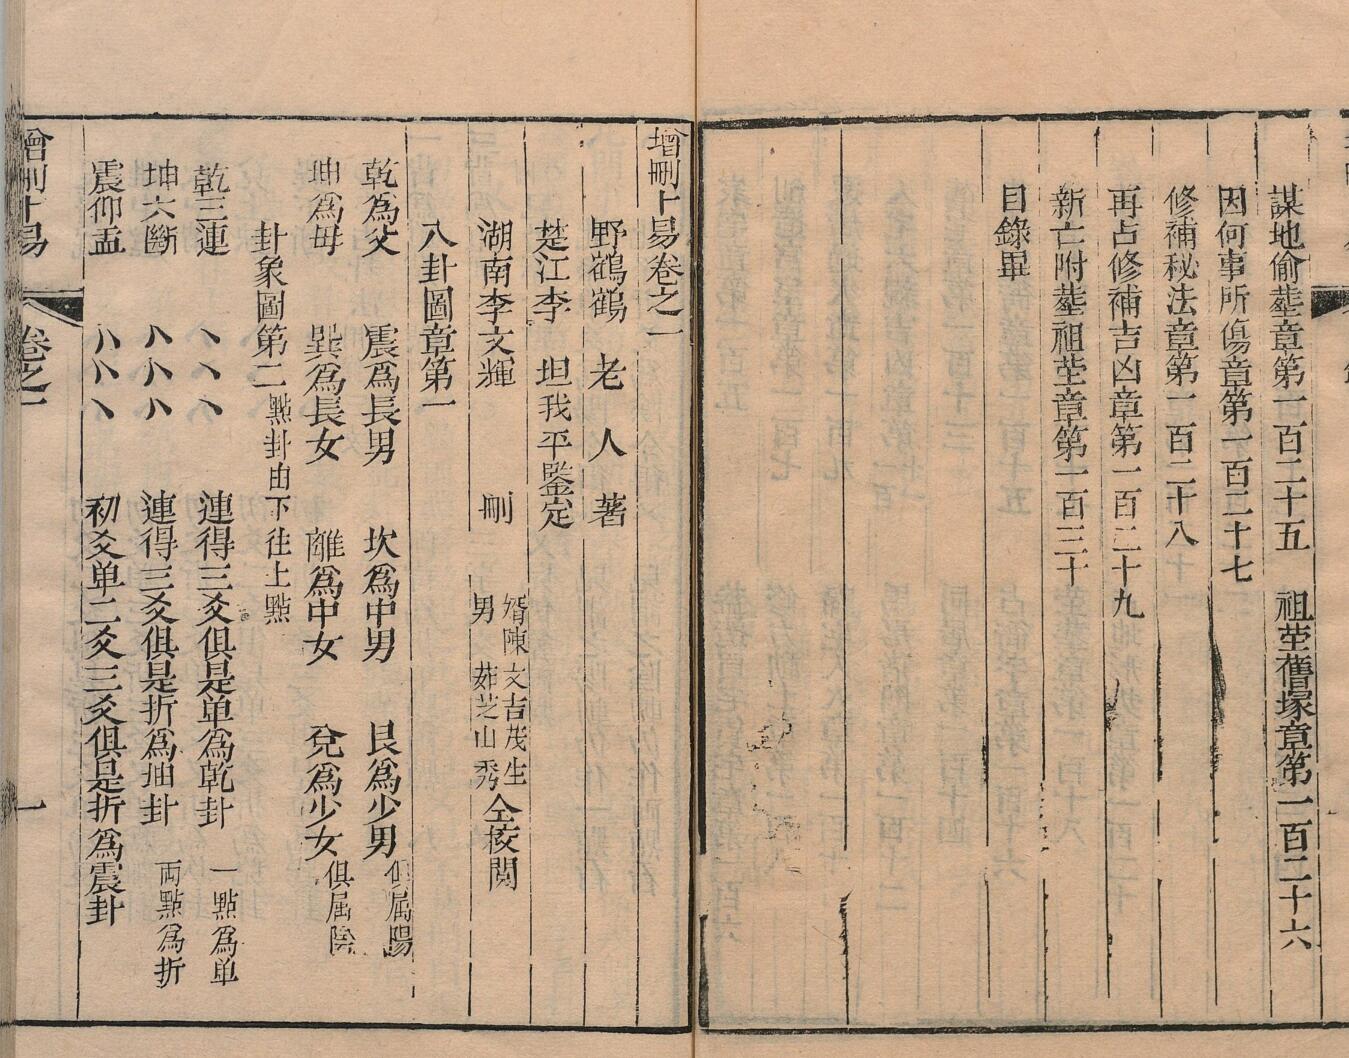 謀地偷塟章第一百二十五　祖塋舊塚章第一百二十六
因何事所傷章第一百二十七
修補秘法章第一百二十八
再占修補吉凶章第一百二十九
新亡附塟祖塋章第一百三十
目錄畢
增刪卜易卷之一
野鶴　老　人　著
楚江李　坦我平鑒定
湖南李文輝　　刪
壻陳文吉茂生
男　茹芝山秀
仝挍閱
八卦圖章第一
乾爲父　震爲長男　坎爲中男　艮爲少男 俱属陽
坤爲母　巽爲長女　離爲中女　兌爲少女 俱属陰
卦象圖第二 點卦由下往上點
乾三連　丶丶丶　連得三爻俱是单爲乾卦　一點爲单
坤六斷　八八八　連得三爻俱是折爲坤卦　両點爲折
震仰盂　八八丶　初爻单二爻三爻俱是折爲震卦
增刪卜易　卷之一　一